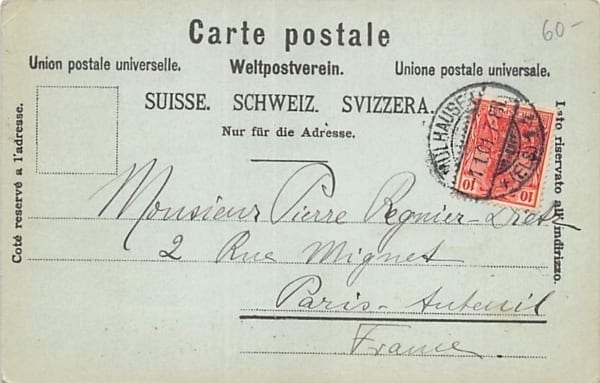 60-
Carte postale
Union postale universelle. Weltpostverein. Unione postale universale.
SUISSE. SCHWEIZ. SVIZZERA.
Nur für die Adresse.
Coté reservé a l'adresse.
Isto riservato all'indirizzo.
MÜLHAUSEN
10 10
Monsieur Pierre Regnier-
2 Rue Mignet
Paris-Auteuil
France